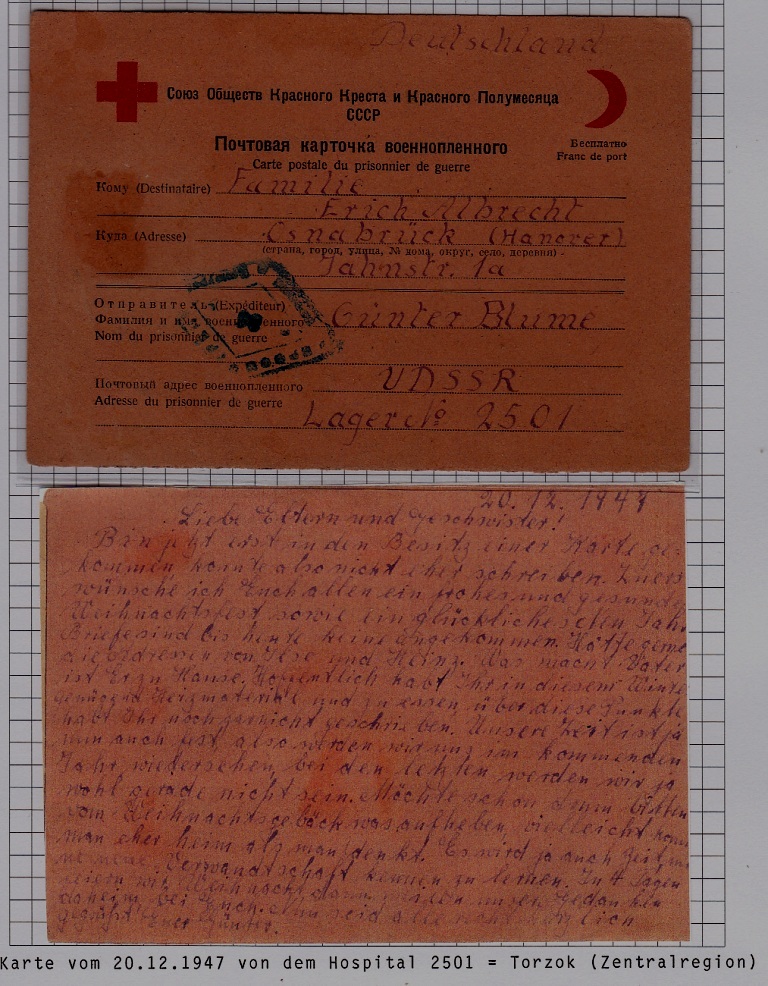 Deutschland
Союз Обществ Красного Креста и Красного Полумесяца
СССР
Почтовая карточка военнопленного
Carte postale du prisonnier de guerre
Бесплатно
Franc de port
Кому (Destinataire) Familie
Erich Albrecht
Куда (Adresse) Osnabrück (Hanover)
(страна, город, улица, № дома, округ, село, деревня)
Jahnstr. 1a
Отправитель (Expéditeur)
Фамилия и имя военнопленного Günter Blume
Nom du prisonnier de guerre
Почтовый адрес военнопленного UDSSR
Adresse du prisonnier de guerre
Lager № 2501
20.12.1947
Liebe Eltern und Geschwister!
Bin jetzt erst in den Besitz einer Karte ge-
kommen, konnte also nicht eher schreiben. Zuers
wünsche ich Euch allen ein frohes und gesund
Weihnachtsfest sowie ein glückliches Jahr
Briefe sind bis heute keine angekommen. Hätte gerne
die Adressen von Ilse und Heinz. Was macht Vater
ist Er zu Hause. Hoffentlich habt Ihr in diesem Winte
genügend Heizmaterial und zu essen, über diese Punkte
habt Ihr noch garnicht geschrieben. Unsere Zeit ist ja
nun auch fest, also werden wir uns im kommenden
Jahr wiedersehen, bei den letzten werden wir ja
wohl gerade nicht sein. Möchte schon drum bitten
vom Weihnachtsgebäck was aufheben, vielleicht kom
man eher heim als man denkt. Es wird ja auch Zeit
neue Verwandtschaft kennen zu lernen. In 4 Tagen
feiern wir Weihnacht, dann weilen unsere Gedanken
daheim bei Euch. Nun seid alle recht herzlich
gegrüßt Euer Günter.
Karte vom 20.12.1947 von dem Hospital 2501 = Torzok (Zentralregion)